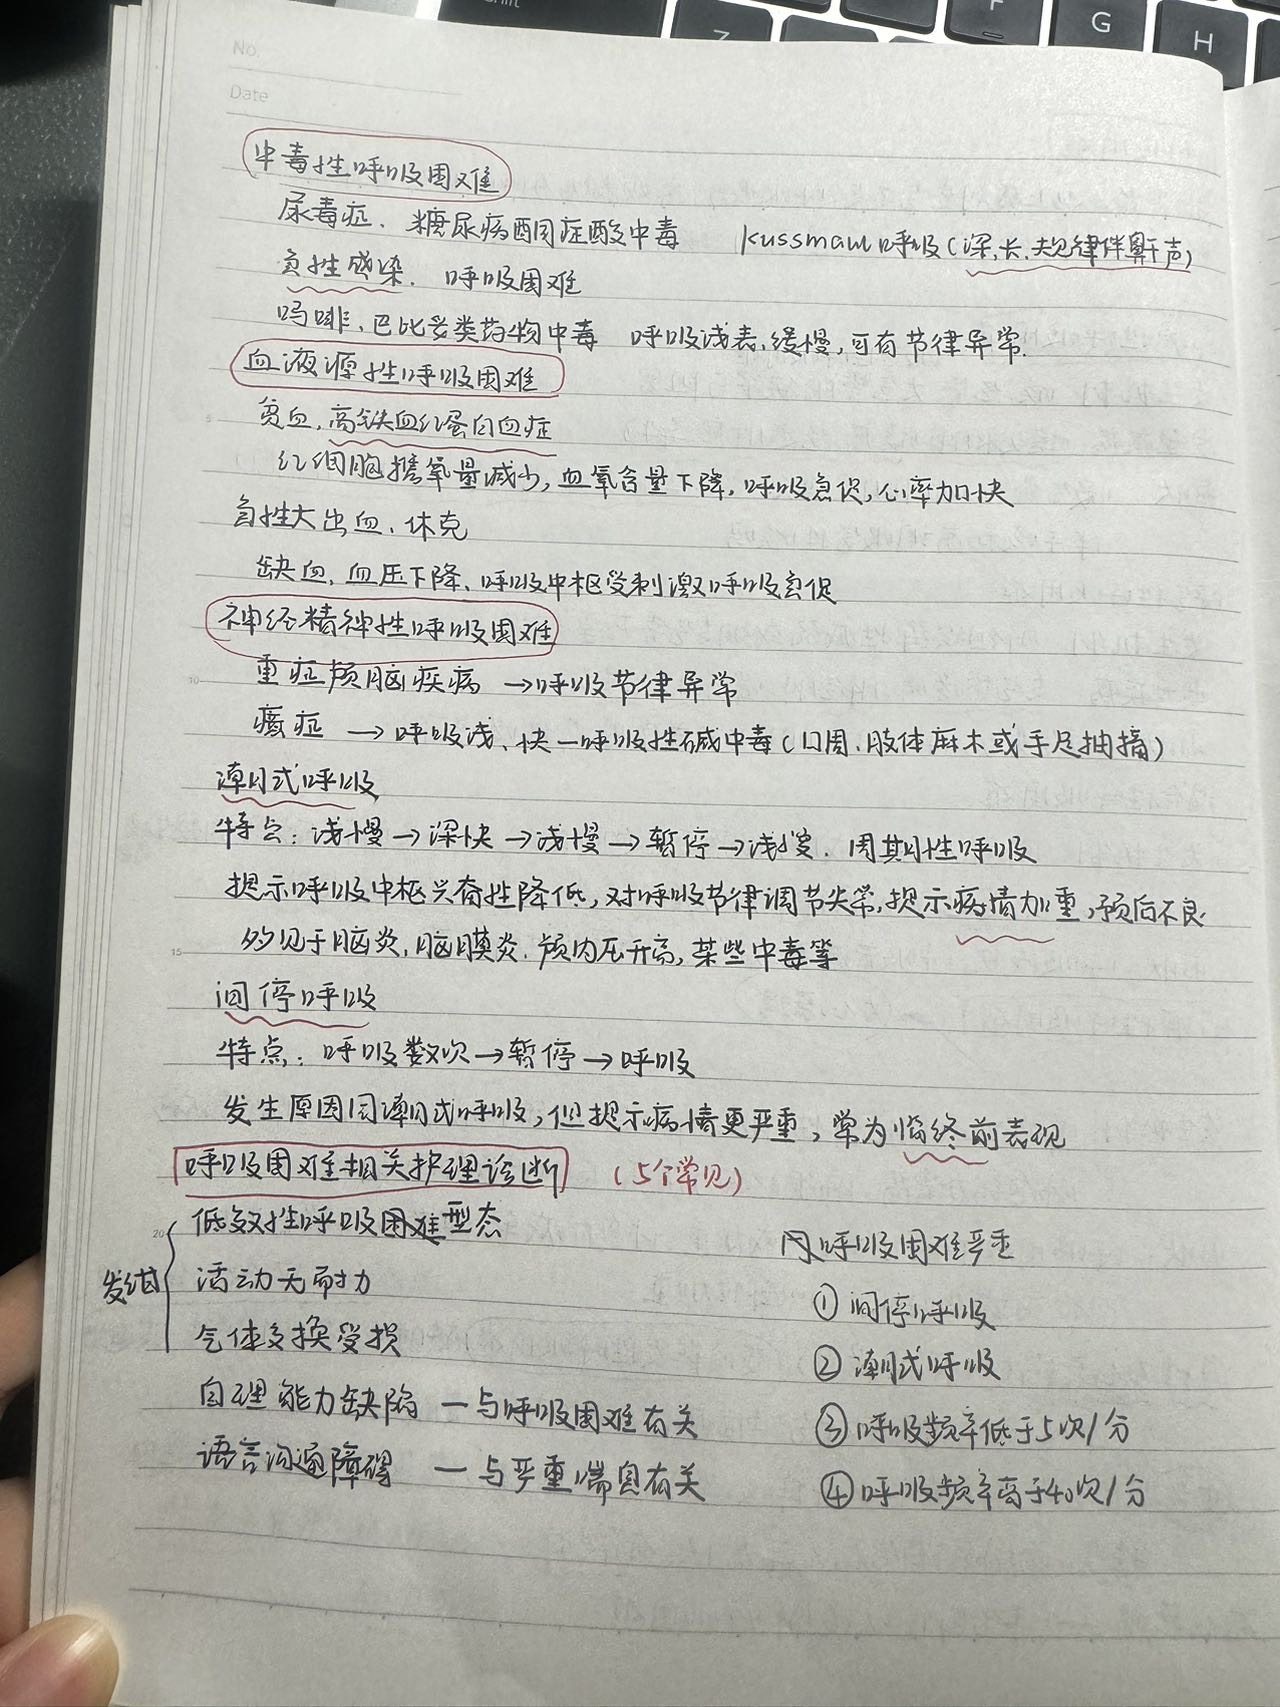 No.
Date
中毒性呼吸困难
尿毒症、糖尿病酮症酸中毒 kussmaul呼吸(深、长、规律伴鼾声)
急性感染、呼吸困难
吗啡、巴比妥类药物中毒 呼吸浅表、缓慢,可有节律异常.
血液源性呼吸困难
贫血,高铁血红蛋白血症
红细胞携氧量减少,血氧含量下降,呼吸急促,心率加快
急性大出血、休克
缺血,血压下降、呼吸中枢受刺激呼吸急促
神经精神性呼吸困难
重症颅脑疾病 →呼吸节律异常
癔症 →呼吸浅、快—呼吸性碱中毒(口周、肢体麻木或手足抽搐)
潮式呼吸
特点:浅慢→深快→浅慢→暂停→浅慢.周期性呼吸
提示呼吸中枢兴奋性降低,对呼吸节律调节失常,提示病情加重,预后不良
多见于脑炎,脑膜炎.颅内压升高,某些中毒等
间停呼吸
特点:呼吸数次→暂停→呼吸
发生原因同潮式呼吸,但提示病情更严重,常为临终前表现
呼吸困难相关护理诊断 (5个常见)
低效性呼吸型态
活动无耐力
气体交换受损
自理能力缺陷 — 与呼吸困难有关
语言沟通障碍 — 与严重喘息有关
发绀
呼吸困难严重
① 间停呼吸
② 潮式呼吸
③ 呼吸频率低于5次/分
④ 呼吸频率高于40次/分